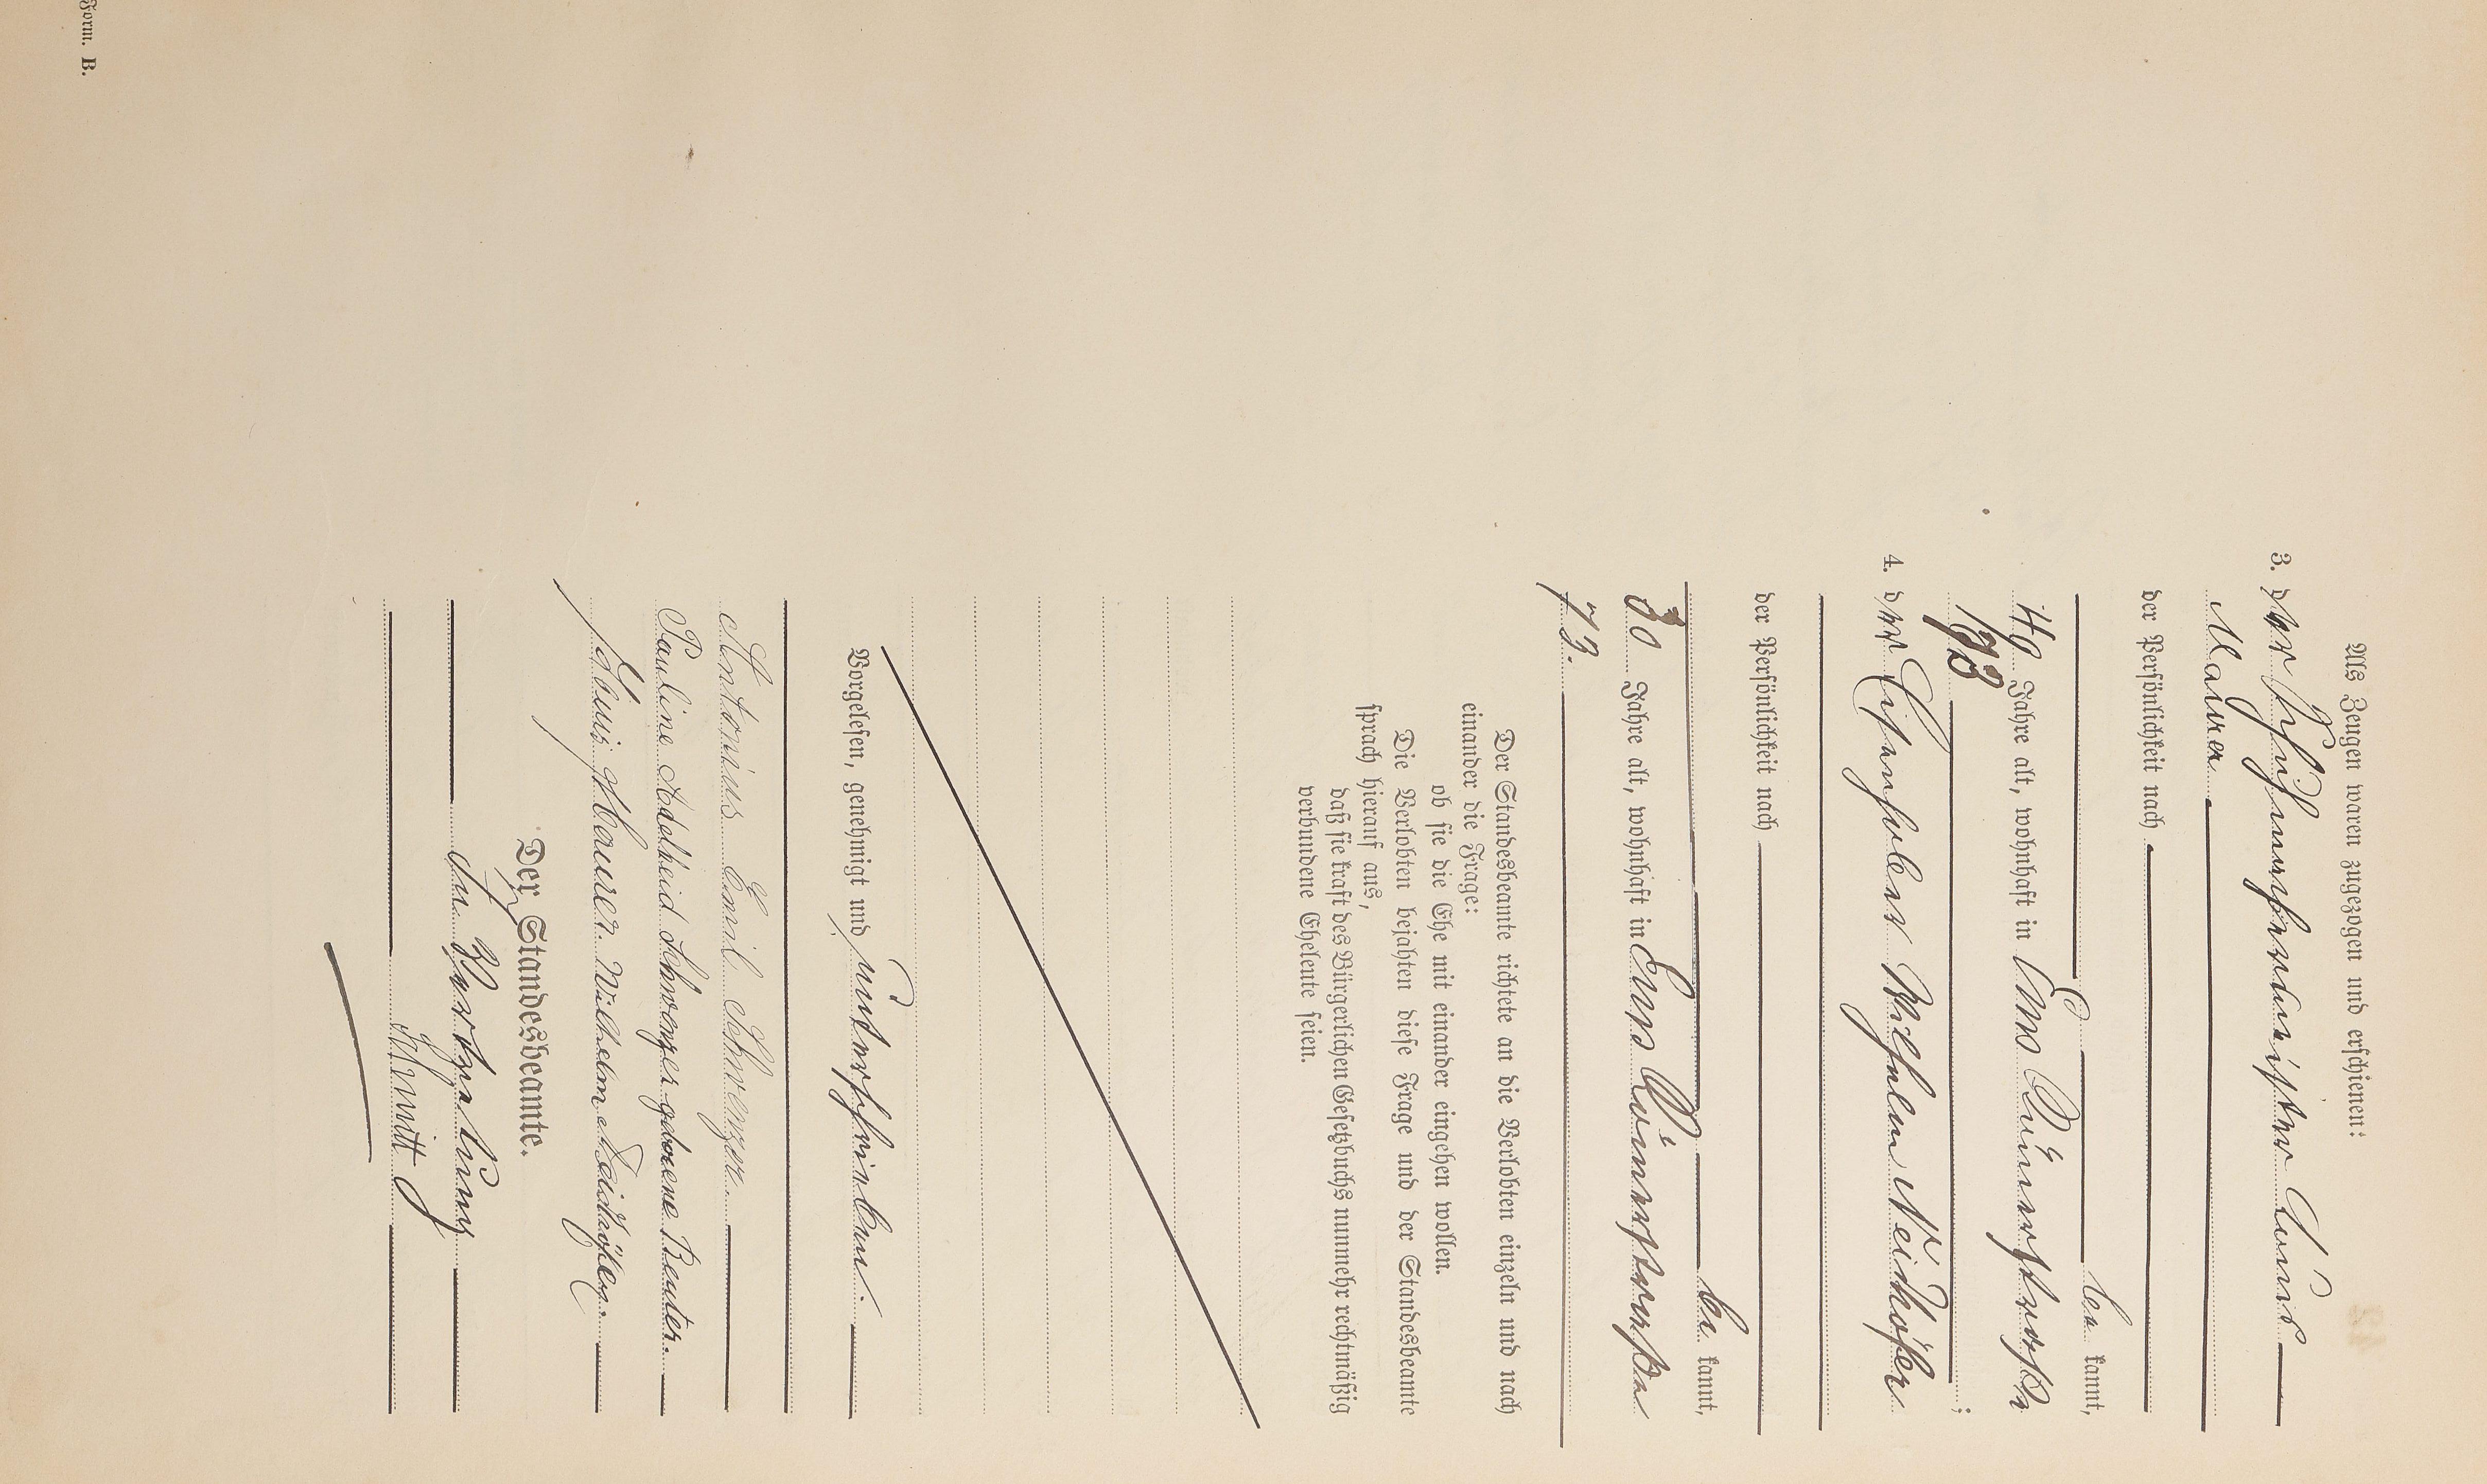 Als Zeugen waren zugezogen und erschienen:
3. der Schuhmachermeister Louis
Maurer
der Persönlichkeit nach
be kannt,
40 Jahre alt, wohnhaft in Ems
193;
4. der Wilhelm Neidhöfer
der Persönlichkeit nach
be kannt,
30 Jahre alt, wohnhaft in Ems Römerstraße
73.
Der Standesbeamte richtete an die Verlobten einzeln und nach
einander die Frage:
ob sie die Ehe mit einander eingehen wollen.
Die Verlobten bejahten diese Frage und der Standesbeamte
sprach hierauf aus,
daß sie kraft des Bürgerlichen Gesetzbuchs nunmehr rechtmäßig
verbundene Eheleute seien.
Vorgelesen, genehmigt und unterschrieben.
Antonius Emil Schwenzer.
Pauline Adelheid Schwenzer geborene Reuter.
Louis Maurer. Wilhelm Neidhöfer.
Der Standesbeamte.
In Vertretung
Schmitt
Form. B.